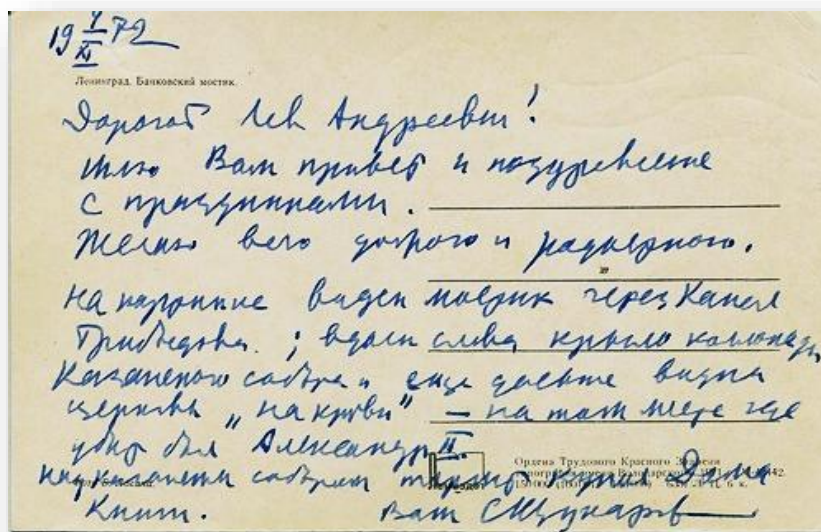 19 7/XI 72
Ленинград. Банковский мостик.
Дорогой Лев Андреевич!
шлю Вам привет и поздравление
с праздниками.
Желаю всего доброго и радостного.
На картинке виден мостик через Канал
Грибоедова; вдали слева крыло колоннады
Казанского собора и еще дальше видна
церковь „на крови" – на том месте где
убит был Александр II.
над казанским собором торчит купол Дома
Книги. Ваш
Ордена Трудового Красного Знамени